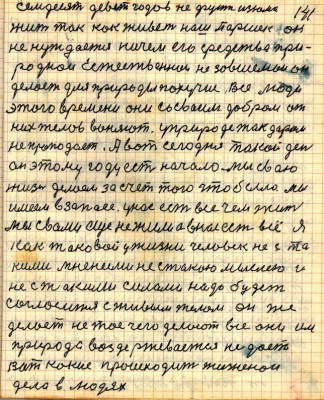 семьдесят девят годов не другим изюма 141
жит так как живет наш Паршек он
не нуждается ничем его средства при-
родной естественной не зависимой он
делает для природы похучие. Все люди
этого времени они со своим добром от
них телов воняют. у природе так даром
не проходит. А вот сегодня такой ден
он этому году ест начало мы сваю
жизн делаем за счет того что было мы
имеем в запасе. у нас ест все чем жит
мы с вами еще не жили а в нас ест всё Я
как таковой у жизни человек не с та
кими мнениями не с такою мыслею и
не с такими силами надо будет
согласится с живым телом он же
делает не тое чего делают все они им
природа воздерживается не дает
вот какие происходит жизненои
дела в людях